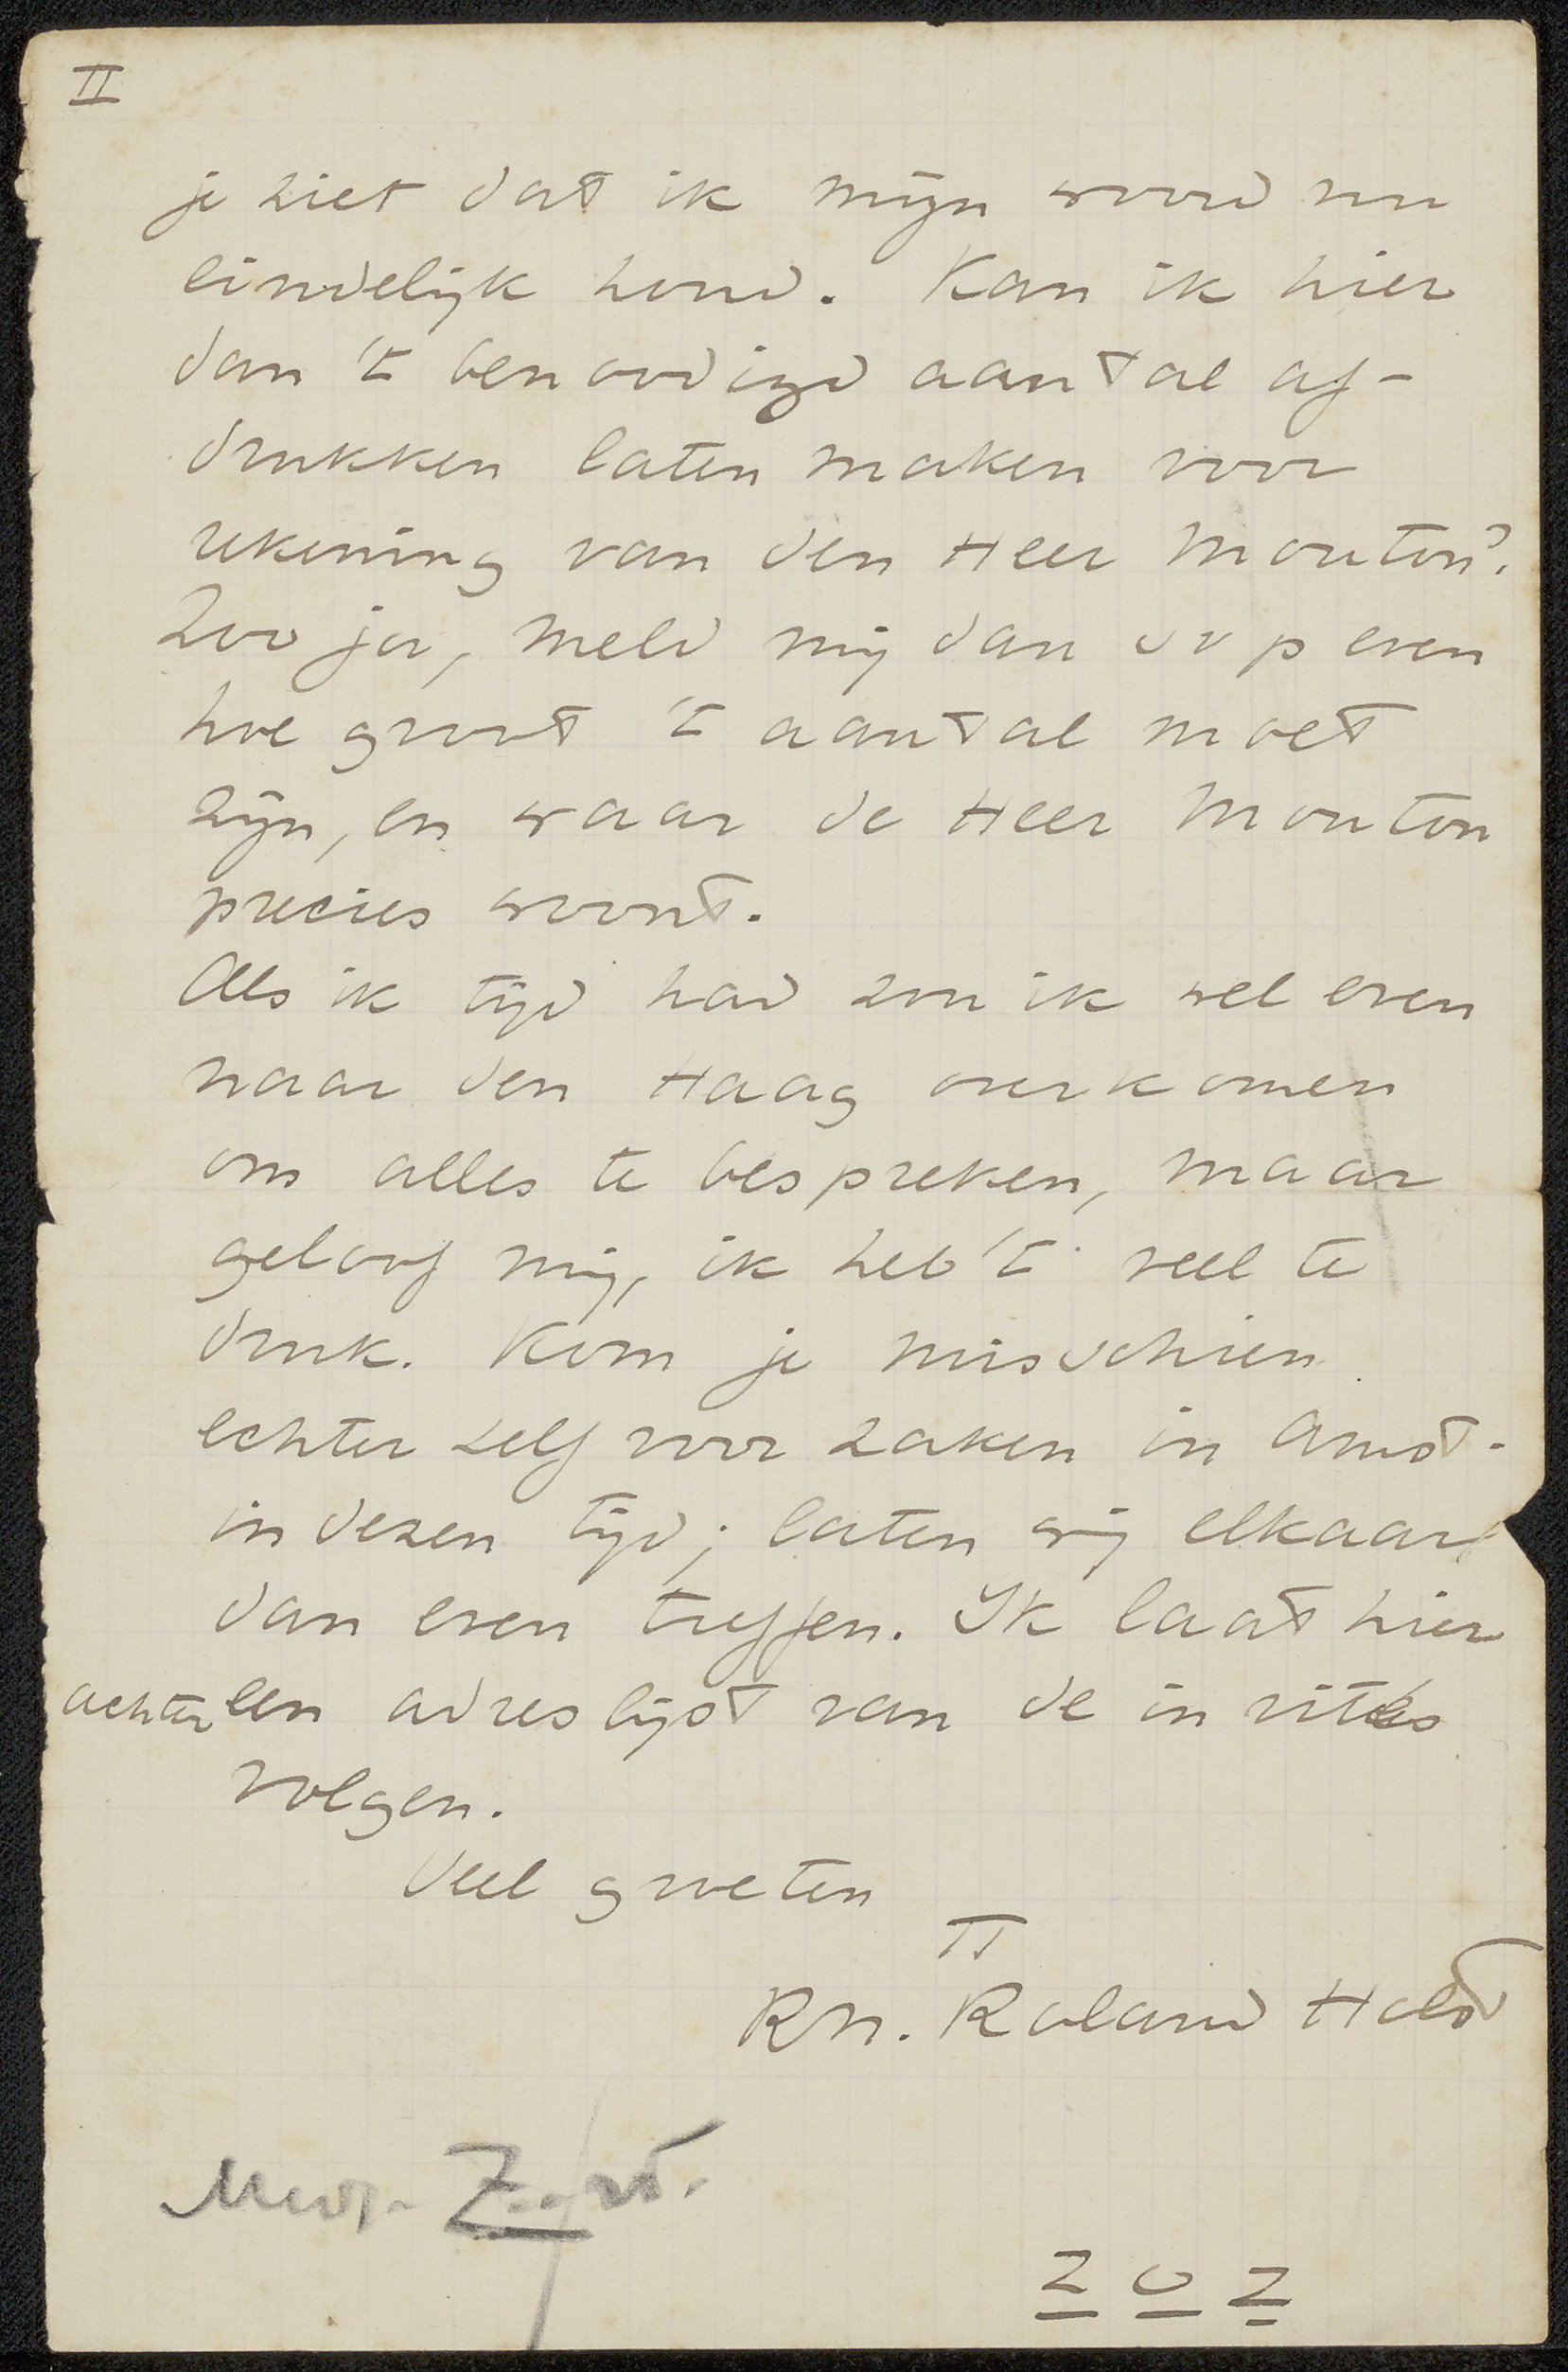 II
je ziet dat ik mijn woord nu
eindelijk houd. Kan ik hier
dan 't benoodigd aantal af-
drukken laten maken voor
rekening van den Heer Mouton?
Zoo ja, meld mij dan svp even
hoe groot 't aantal moet
zijn, en waar de Heer Mouton
precies woont.
Als ik tijd had zou ik wel even
naar den Haag overkomen
om alles te bespreken, maar
geloof mij, ik heb 't veel te
druk. Kom je misschien
echter zelf voor zaken in Amst.
in dezen tijd; laten wij elkaar
dan even treffen. Ik laat hier
achter een adreslijst van de invités
volgen.
Veel groeten
TT
RN. Roland Holst
Z O Z